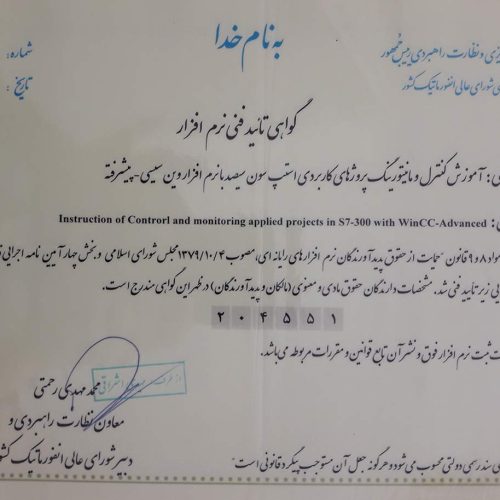 به نام خدا
شماره:
تاریخ:
ریزی و نظارت راهبردی رییس جمهور
شورای عالی انفورماتیک کشور
گواهی تائید فنی نرم افزار
: آموزش کنترل و مانیتورینگ پروژهای کاربردی استپ سون سیصد با نرم افزار وین سی سی-پیشرفته
: Instruction of Controrl and monitoring applied projects in S7-300 with WinCC-Advanced
مواد ۸ و ۹ قانون "حمایت از حقوق پدیدآورندگان نرم افزارهای رایانه ای، مصوب ۱۳۷۹/۱۰/۴ مجلس شورای اسلامی و بخش چهار آیین نامه اجرایی
زیر تایید فنی شد. مشخصات دارندگان حقوق مادی و معنوی (مالکان و پدیدآورندگان) در ظهر این گواهی مندرج است.
۲۰۴۵۵۱
ثبت نرم افزار فوق و نشر آن تابع قوانین و مقررات مربوطه می‌باشد.
از طرف اشراقی
محمد مهدی رحمتی
معاون نظارت راهبردی و
دبیر شورای عالی انفورماتیک کشور
سندرسمی دولتی محسوب می‌شود و هرگونه جعل آن مستوجب پیگرد قانونی است"